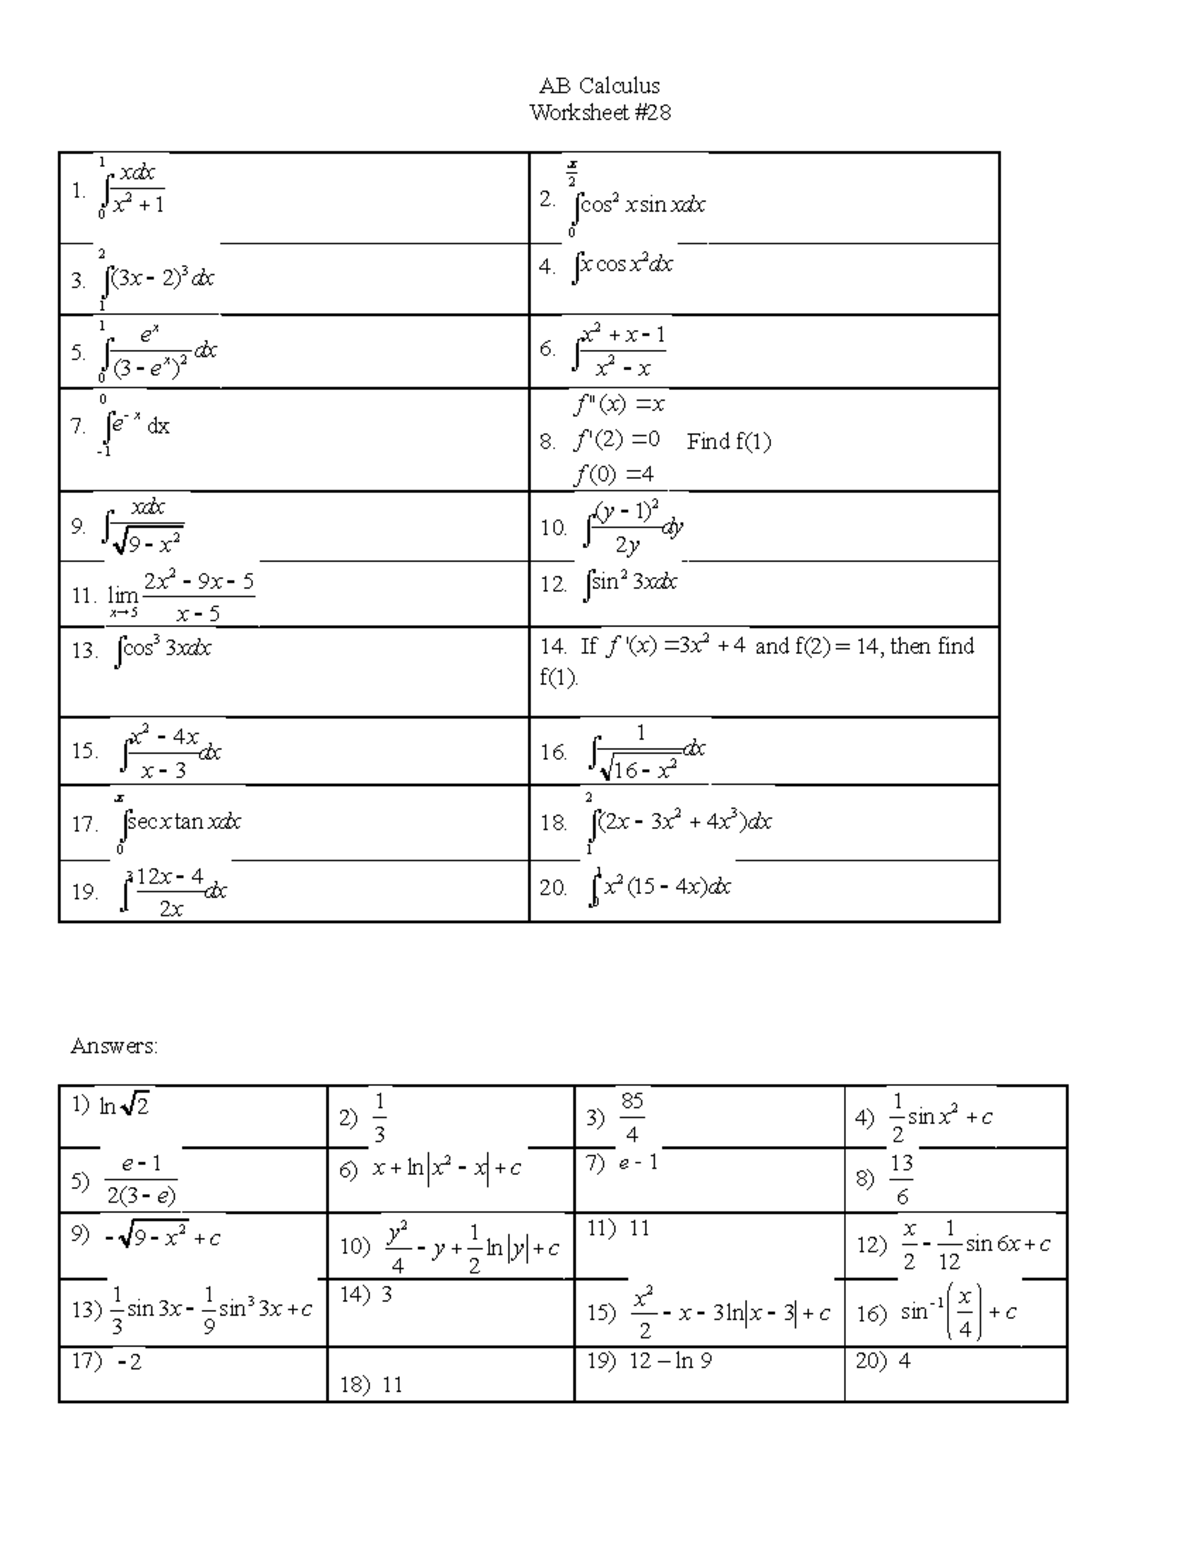 AB Calculus
Worksheet #28
1. ∫₀¹ xdx / (x² + 1)
2. ∫₀^(π/2) cos² x sin xdx
3. ∫₁² (3x - 2)³ dx
4. ∫x cos x² dx
5. ∫₀¹ eˣ / (3 - eˣ)² dx
6. ∫ (x² + x - 1) / (x² - x)
7. ∫₋₁⁰ e^(-x) dx
8. f"(x) = x
f'(2) = 0 Find f(1)
f(0) = 4
9. ∫ xdx / √(9 - x²)
10. ∫ (y - 1)² / 2y dy
11. lim x→5 (2x² - 9x - 5) / (x - 5)
12. ∫sin² 3xdx
13. ∫cos³ 3xdx
14. If f '(x) = 3x² + 4 and f(2) = 14, then find
f(1).
15. ∫ (x² - 4x) / (x - 3) dx
16. ∫ 1 / √(16 - x²) dx
17. ∫₀^π sec x tan xdx
18. ∫₁² (2x - 3x² + 4x³)dx
19. ∫³ (12x - 4) / 2x dx
20. ∫₀¹ x² (15 - 4x)dx
Answers:
1) ln √2
2) 1/3
3) 85/4
4) 1/2 sin x² + c
5) (e - 1) / 2(3 - e)
6) x + ln|x² - x| + c
7) e - 1
8) 13/6
9) -√(9 - x²) + c
10) y²/4 - y + 1/2 ln|y| + c
11) 11
12) x/2 - 1/12 sin 6x + c
13) 1/3 sin 3x - 1/9 sin³ 3x + c
14) 3
15) x²/2 - x - 3ln|x - 3| + c
16) sin⁻¹(x/4) + c
17) -2
18) 11
19) 12 – ln 9
20) 4